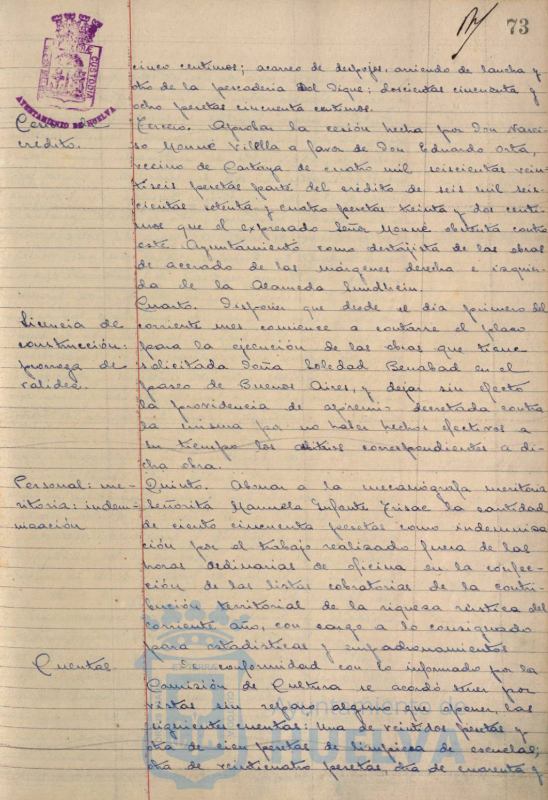 73
AYUNTAMIENTO DE HUELVA
cinco centimos; acarreo de despojos, arriendo de lancha y
otro de la pescaderia del Dique; doscientas cincuenta y
ocho pesetas cincuenta centimos.
crédito.
Tercero. Aprobar la cesión hecha por Don Narci-
so Monné Vilella a favor de Don Eduardo Orta,
vecino de Cartaya de cuatro mil seiscientas vein-
tiseis pesetas parte del crédito de seis mil seis-
cientas setenta y cuatro pesetas treinta y dos centi-
mos que el expresado Señor Monné ostenta contra
este Ayuntamiento como destajista de las obras
de acerado de las márgenes derecha e izquier-
da de la Alameda Sundheim.
Licencia de
construcción:
prorroga de
validez.
Cuarto. Disponer que desde el dia primero del
corriente mes comience a contarse el plazo
para la ejecución de las obras que tiene
solicitada Doña Soledad Benabad en el
paseo de Buenos Aires, y dejar sin efecto
la providencia de apremio decretada contra
la misma por no haber hechos efectivos a
su tiempo los arbitrios correspondientes a di-
cha obra.
Personal: me-
ritoria: indem-
nización
Quinto. Abonar a la mecanógrafa meritoria
Señorita Manuela Infante la cantidad
de ciento cincuenta pesetas como indemniza-
ción por el trabajo realizado fuera de las
horas ordinarias de oficina en la confec-
ción de las listas cobratorias de la contri-
bución territorial de la riqueza rústica del
corriente año, con cargo a lo consignado
para estadisticas y empadronamientos
Cuentas
De conformidad con lo informado por la
Comisión de Cultura se acordó tener por
vistas sin reparo alguno que oponer, las
siguientes cuentas: Una de veintidos pesetas y
otra de cien pesetas de limpieza de escuelas;
otra de veinticuatro pesetas, otra de cuarenta y
Ayuntamiento
HUELVA